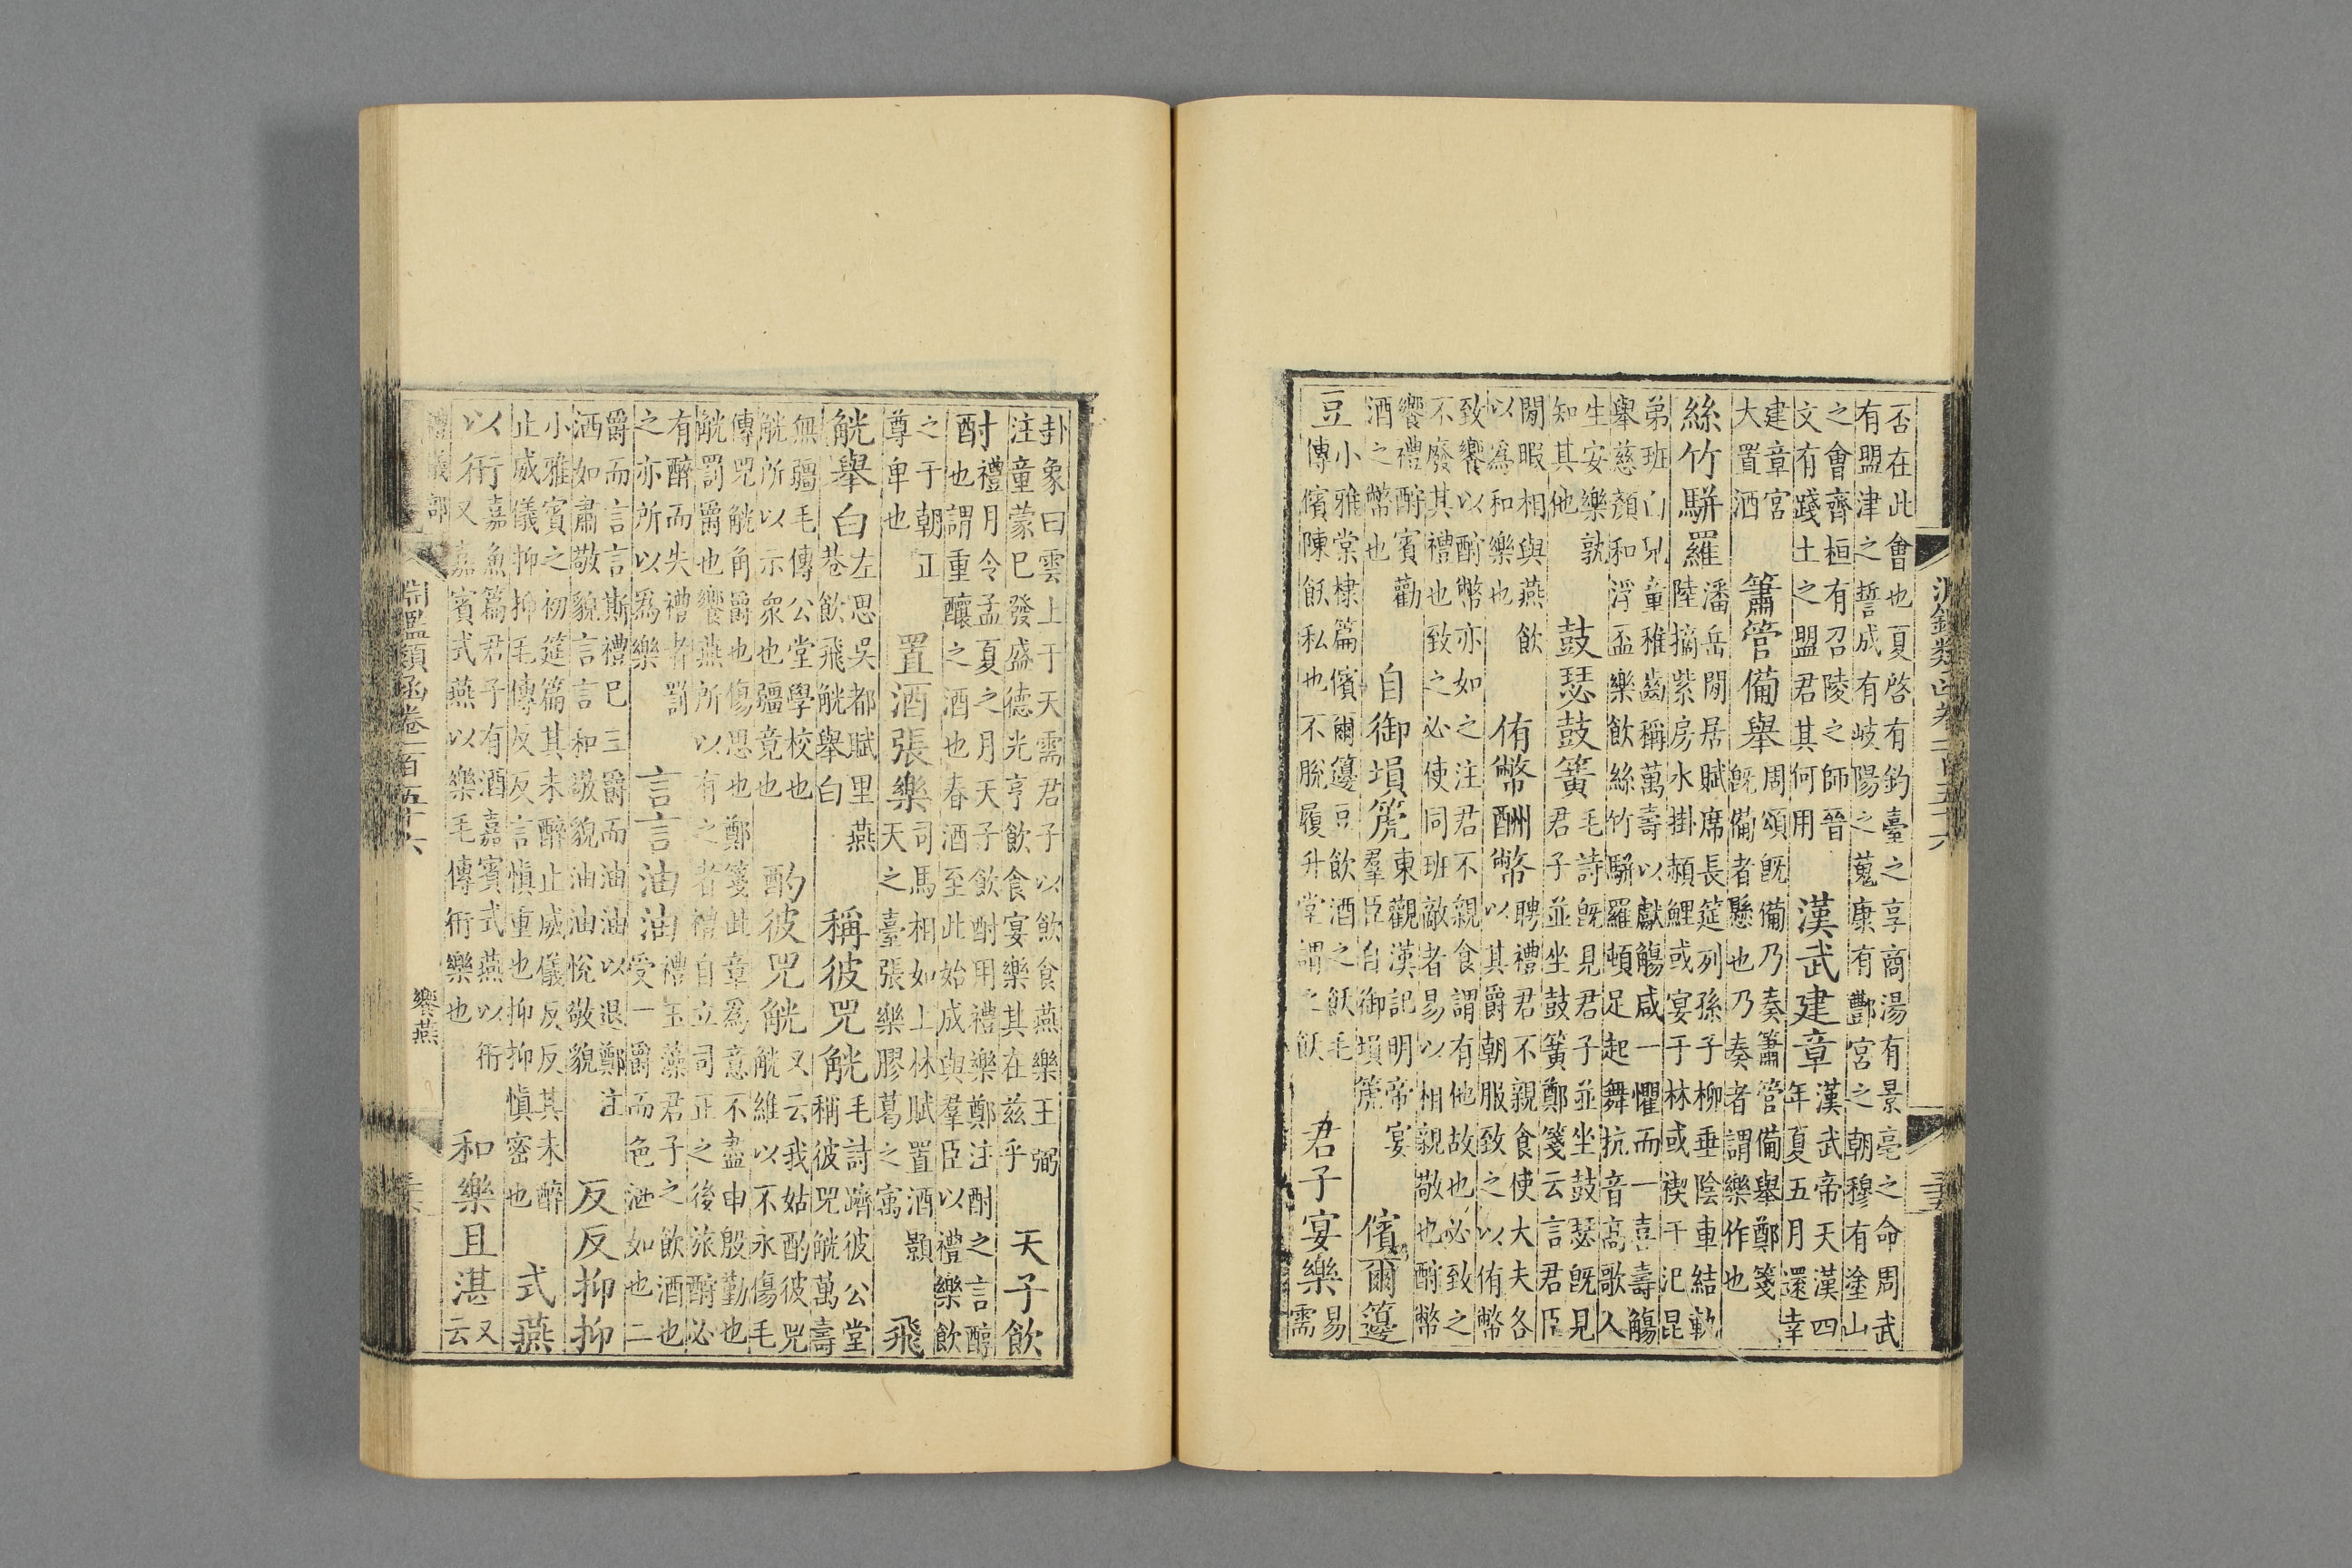 淵鑑類函卷一百五十六
三五
否在此會也夏啓有鈞臺之享商湯有景亳之命周武
有盟津之誓成有岐陽之蒐康有酆宮之朝穆有塗山
之會齊桓有召陵之師晉
文有踐土之盟君其何用
漢武建章
漢武帝天漢四
年夏五月還幸
建章宮
大置酒
簫管備舉
周頌旣備乃奏簫管備舉鄭箋
旣備者懸也乃奏者謂樂作也
絲竹駢羅
潘岳閒居賦席長筵列孫子柳垂陰車結軌
陸摘紫房水掛赬鯉或宴于林或禊于汜昆
弟班白兒童稚齒稱萬壽以獻觴咸一懼而一喜壽觴
舉慈顏和浮盃樂飲絲竹駢羅頓足起舞抗音高歌人
生安樂孰
知其他
鼓瑟鼓簧
毛詩旣見君子並坐鼓瑟旣見
君子並坐鼓簧鄭箋云言君臣
閒暇相與燕飲
以爲和樂也
侑幣酬幣
聘禮君不親食使大夫各
以其爵朝服致之以侑幣
致饗以酧幣亦如之注君不親食謂有他故也必致之
不廢其禮也致之必使同班敵者易以相親敬也酧幣
饗禮酧賓勸
酒之幣也
自御塤箎
東觀漢記明帝宴
羣臣自御塤箎
儐爾籩
豆
小雅棠棣篇儐爾籩豆飲酒之飫毛
傳儐陳飫私也不脫履升堂謂之飫
君子宴樂
易
需
卦象曰雲上于天需君子以飲食燕樂王弼
注童蒙已發盛德光亨飲食宴樂其在茲乎
天子飲
酎
禮月令孟夏之月天子飲酎用禮樂鄭注酎之言醇
也謂重釀之酒也春酒至此始成與羣臣以禮樂飲
之于朝正
尊卑也
置酒張樂
司馬相如上林賦置酒顥
天之臺張樂膠葛之寓
飛
觥舉白
左思吳都賦里燕
巷飲飛觥舉白
稱彼兕觥
毛詩躋彼公堂
稱彼兕觥萬壽
無疆毛傳公堂學校也
觥所以示衆也疆竟也
酌彼兕觥
又云我姑酌彼兕
觥維以不永傷毛
傳兕觥角爵也傷思也鄭箋此章爲意不盡申殷勤也
觥罰爵也饗燕所以有之者禮自立司正之後旅酧必
有醉而失禮者罰
之亦所以爲樂
言言油油
禮玉藻君子之飲酒也
受一爵而色洒如也二
爵而言言斯禮已三爵而油油以退鄭注
洒如肅敬貌言言和敬貌油油悅敬貌
反反抑抑
小雅賓之初筵篇其未醉止威儀反反其未醉
止威儀抑抑毛傳反反言愼重也抑抑愼密也
式燕
以衎
嘉魚篇君子有酒嘉賓式燕以衎
又嘉賓式燕以樂毛傳衎樂也
和樂且湛
又
云
禮儀部
淵鑑類函卷一百五十六
饗燕